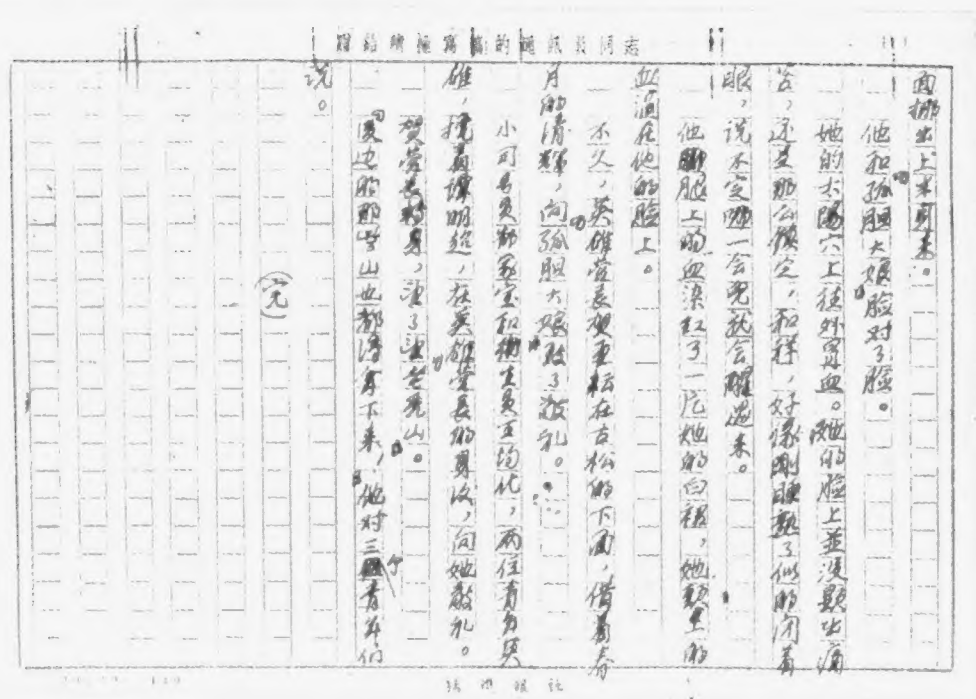 写给听报写稿的通讯员同志
面挪出上半身来。
他和孤胆大娘脸对了脸。
她的太陽穴上往外冒血。她的脸上並没顯出痛
苦，还是那么鎮定，和祥，好像剛睡熟了似的闭着
眼，说不定哪一会兒就会醒过来。
他腿上的血染红了一片她的白褂，她的
血滴在他的脸上。
不久，英雄营長贺重耘在古松的下面，借着春
月的清輝，向孤胆大娘敬了敬礼。
小司号員郜家宝和衛生員王均化，两位青年英
雄，揽着譚明超，在英雄营長的身後，向她敬礼。
贺营長轉身，望了望老秃山。
“那边的那些山也都得拿下来，”他对三个青年们
说。
（完）